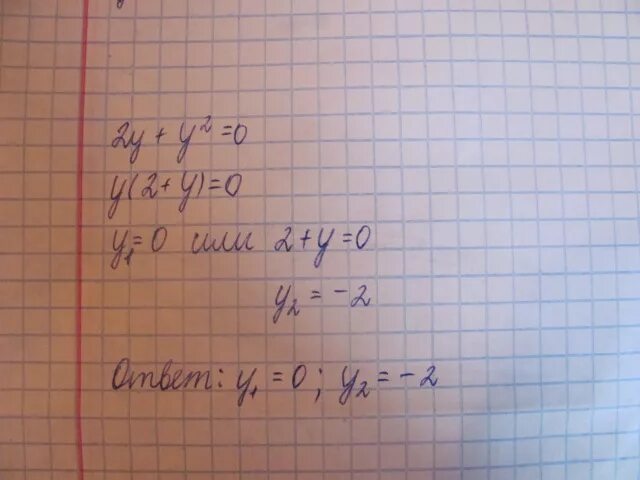 2y + y² = 0
y(2 + y) = 0
y₁ = 0 или 2 + y = 0
y₂ = -2
Ответ: y₁ = 0; y₂ = -2